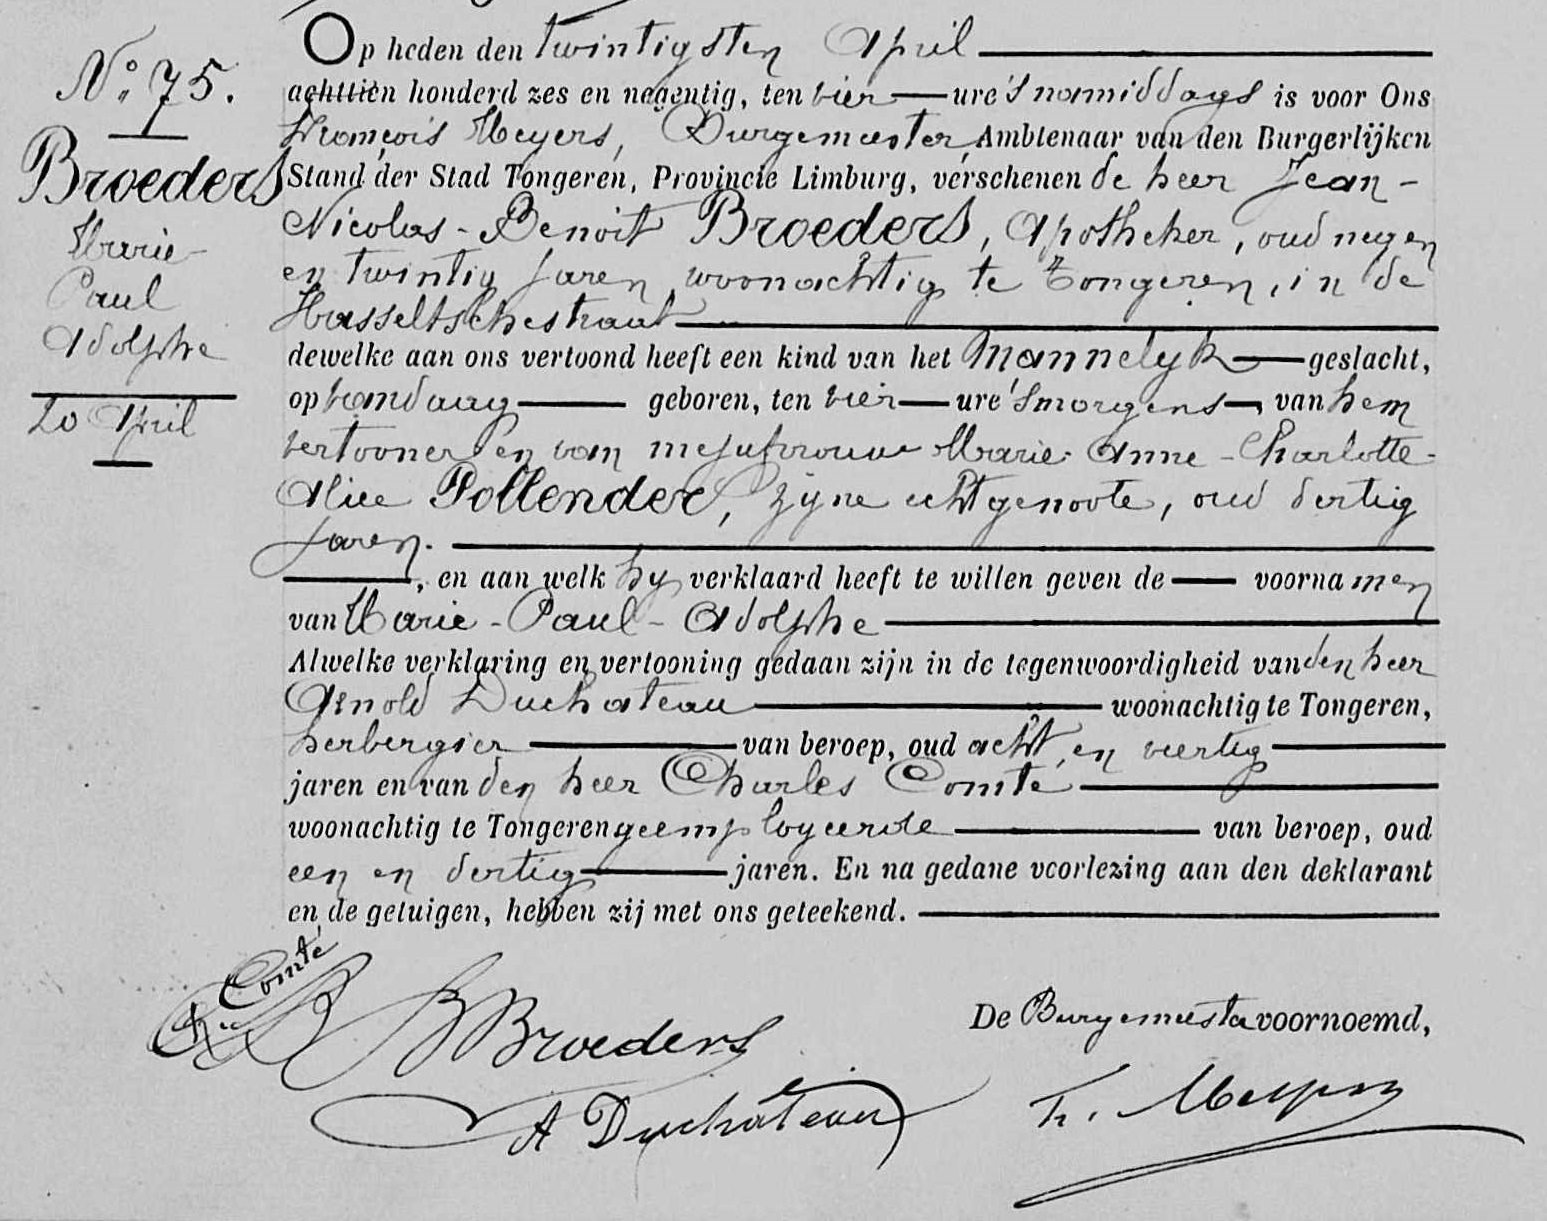 N.º 75.
Broeders
Marie
Paul
Adolphe
20 April
Op heden den twintigsten April
achttien honderd zes en negentig, ten vier ure 's namiddags is voor Ons
François Meyers, Burgemeester, Ambtenaar van den Burgerlijken
Stand der Stad Tongeren, Provincie Limburg, verschenen de heer Jean-
Nicolas-Benoit Broeders, Apotheker, oud negen
en twintig jaren woonachtig te Tongeren, in de
Hasseltschestraat
dewelke aan ons vertoond heeft een kind van het mannelyk geslacht,
op vandaag geboren, ten vier ure 's morgens, van hem
vertooner en van mejufvrouw Marie-Anne-Charlotte-
Alice Pollender, zyne echtgenoote, oud dertig
jaren.
, en aan welk hy verklaard heeft te willen geven de voornamen
van Marie-Paul-Adolphe
Alwelke verklaring en vertooning gedaan zijn in de tegenwoordigheid van den heer
Arnold Duchateau woonachtig te Tongeren,
herbergier van beroep, oud acht en veertig
jaren en van den heer Charles Comté
woonachtig te Tongeren geemployeerde van beroep, oud
een en dertig jaren. En na gedane voorlezing aan den deklarant
en de getuigen, hebben zij met ons geteekend.
Comté
B Broeders
De Burgemeester voornoemd,
A Duchateau
Fr. Meyers